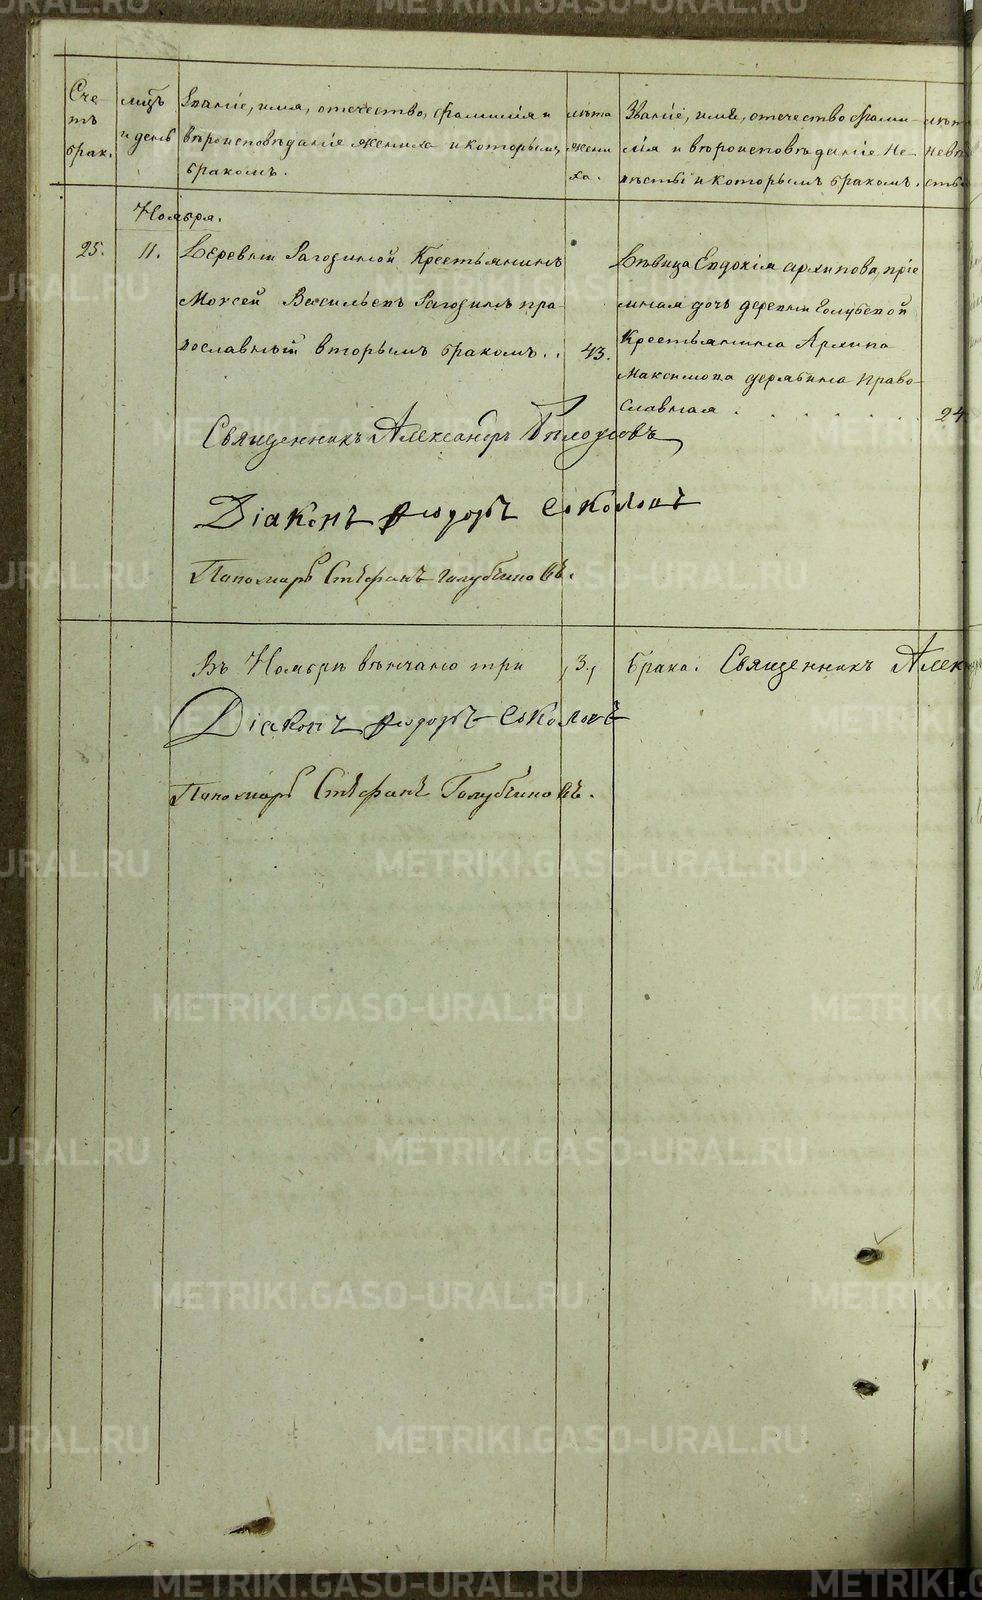 Сче-
тъ
брак.
мцъ
и день
Званіе, имя, отечество, фамилія и
вѣроисповѣданіе жениха и которымъ
бракомъ.
лѣта
жени
ха.
Званіе, имя, отечество фами-
лія и вѣроисповѣданіе Не-
вѣсты и которымъ бракомъ.
лѣт
невѣ
сты
Ноября.
25.
11.
Деревни Рагозиной Крестьянинъ
Моѵсей Васильевъ Рагозинъ пра-
вославный вторымъ бракомъ..
43.
Дѣвица Евдокія архипова, пріе
мная дочь деревни Голубевой
Крестьянина Архипа
Максимова дерябина право-
славная . . . . . . .
24
Священникъ Александръ Бѣлоусовъ
Діаконъ Ѳеодоръ Соколовъ
Пономарь Стефанъ голубчиковъ.
Въ Ноябрѣ вѣнчано три
,3,
брака. Священникъ Алек
Діаконъ Ѳеодоръ Соколовъ
Пономарь Стефанъ Голубчиковъ.
METRIKI.GASO-URAL.RU